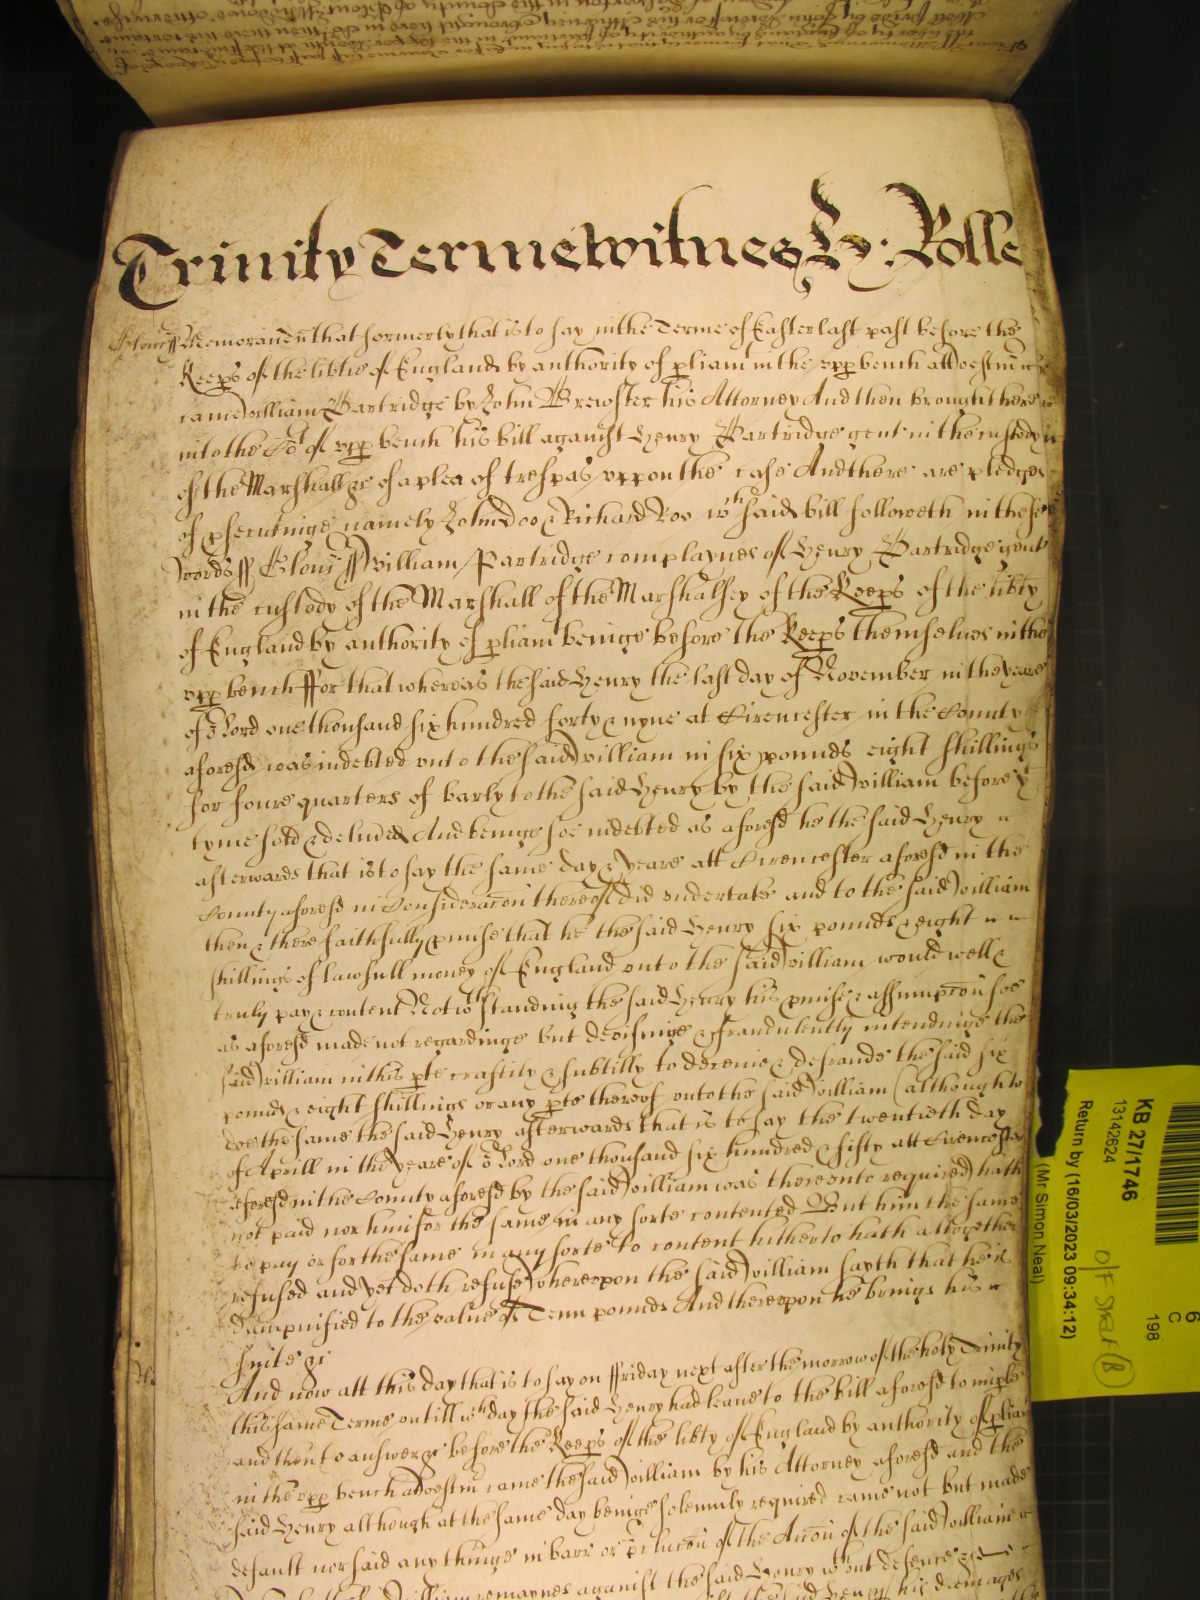 Trinity Terme witnes H: Rolle
Glouc ss Memorand that formerly that is to say in the Terme of Easter last past before the
Keeps of the libtie of England by authority of pliamt in the upp bench att Westm
came William Partridge by John Brewster his Attorney And then brought here
into the Cot of upp bench his bill against Henry Partridge gent in the custody
of the Marshall &c of a plea of trespas uppon the case And there are pledges
of psecutinge namely John Doo & Richard Roo wch said bill followeth in these
words ss Glouc ss William Partridge complaynes of Henry Partridge gent
in the custody of the Marshall of the Marshalsey of the Keeps of the libty
of England by authority of pliam beinge before the Keeps themselves in the
upp bench ffor that whereas the said Henry the last day of November in the yeare
of or Lord one thousand six hundred forty & nyne at Cirencester in the County
aforesd was indebted unto the said William in six pounds eight shillings
for foure quarters of barly to the said Henry by the said William before yt
tyme sold & delived And beinge soe indebted as aforesd he the said Henry
afterwards that is to say the same day & yeare att Cirencester aforesd in the
County aforesd in Consideracon thereof did undertake and to the said William
then & there faithfully pmise that he the said Henry six pounds & eight
shillings of lawfull money of England unto the said William would well &
truly pay & content Notwthstanding the said Henry his pmise & assumpcon soe
as aforesd made not regardinge but devisinge & fraudulently intendinge the
said William in this pte craftily & subtilly to deceive & defraude the said six
pounds & eight shillings or any pte thereof unto the said William (although to
doe the same the said Henry afterwards that is to say the twentieth day
of Aprill in the yeare of or Lord one thousand six hundred & fifty att Cirencester
aforesd in the County aforesd by the said William was thereunto required) hath
not paid nor him for the same in any sorte contented But him the same
to pay or for the same in any sorte to content hitherto hath altogether
refused and yet doth refuse Whereupon the said William sayth that he is
dampnified to the value of Tenn pounds And thereupon he brings his
suite &c
And now att this day that is to say on ffriday next after the morrow of the holy Trinity
this same Terme untill wch day the said Henry had leave to the bill aforesd to imple
and then to answer &c before the Keeps of the libty of England by authority of pliam
in the upp bench att Westm came the said William by his Attorney aforesd and the
said Henry although at the same day beinge solemnly required came not but made
default nor said any thinge in barr or pclucon of the Accon of the said William
William remaynes against the said Henry wthout defence &c
his damages
KB 27/1746
13142624
Return by (16/03/2023 09:34:12)
(Mr Simon Neal)
6
C
198